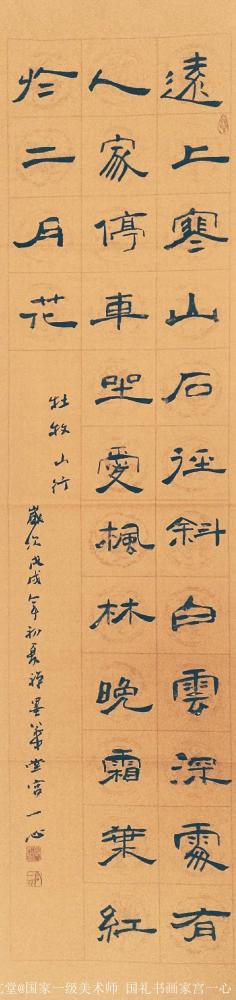 遠上寒山石徑斜白雲深處有
人家停車坐愛楓林晚霜葉紅
於二月花
杜牧山行
歲次戊戌年初夏禅墨華堂宫一心
堂@国家一级美术师 国礼书画家宫一心